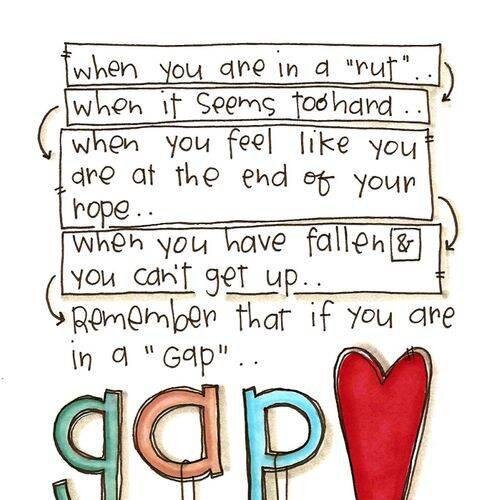 when you are in a "rut"..
when it seems too hard..
when you feel like you
are at the end of your
rope..
when you have fallen &
you can't get up..
Remember that if you are
in a "Gap"..
gap